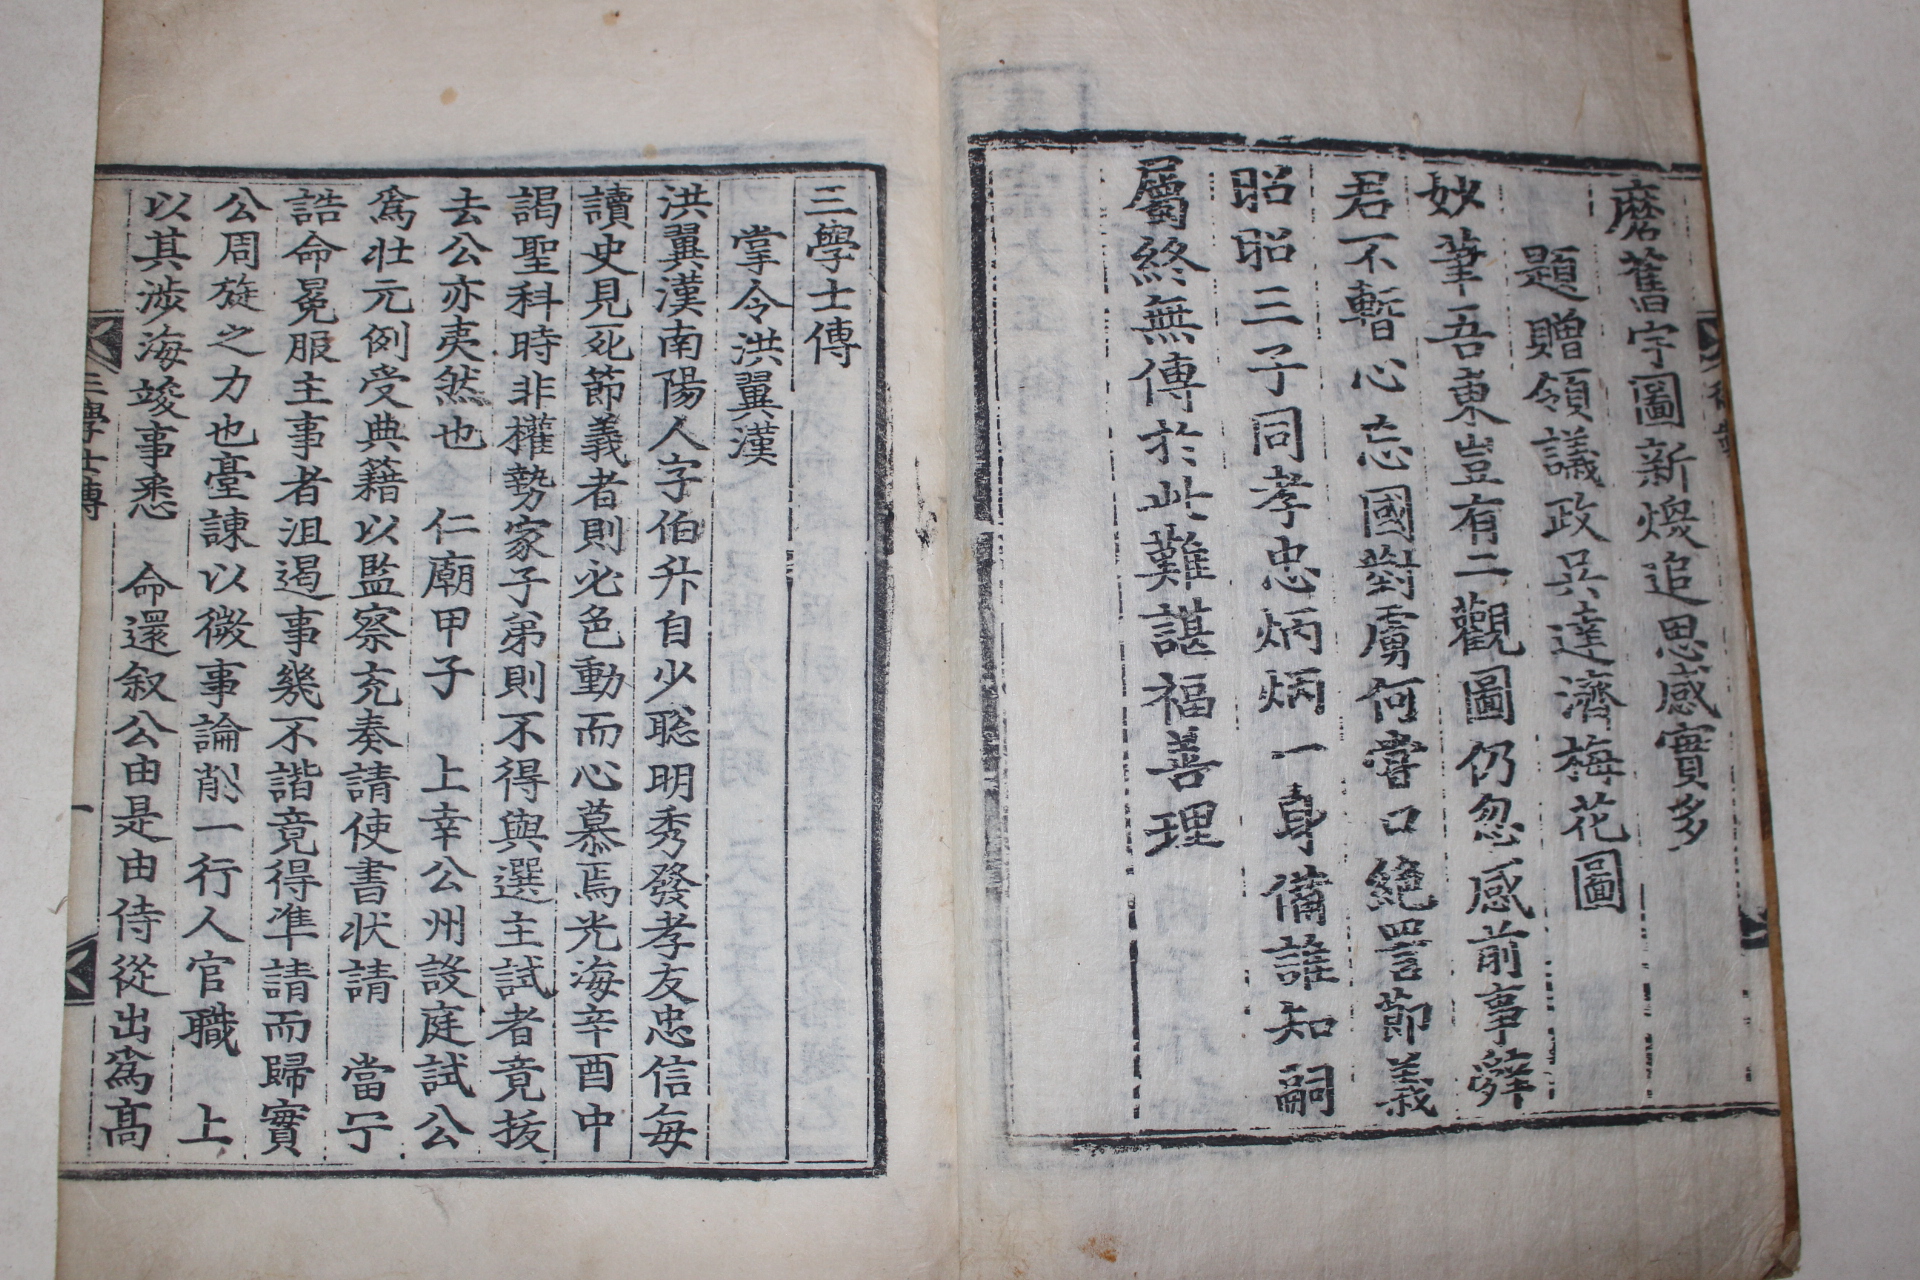 磨舊字圖新煥追思感實多
題贈領議政吳達濟梅花圖
妙筆吾東豈有二觀圖仍忽感前事辭
君不暫心忘國對虜何嘗口絶詈節義
昭昭三子同孝忠炳炳一身備誰知嗣
屬終無傳於此難諶福善理
三學士傳
掌令洪翼漢
洪翼漢南陽人字伯升自少聡明秀發孝友忠信每
讀史見死節義者則必色動而心慕焉光海辛酉中
謁聖科時非權勢家子弟則不得與選主試者竟拔
去公亦夷然也 仁廟甲子 上幸公州設庭試公
爲壯元例受典籍以監察充奏請使書狀請 當宁
誥命冕服主事者沮遏事幾不諧竟得準請而歸實
公周旋之力也臺諫以微事論削一行人官職 上
以其涉海竣事悉 命還叙公由是由侍從出爲高
三學士傳
一